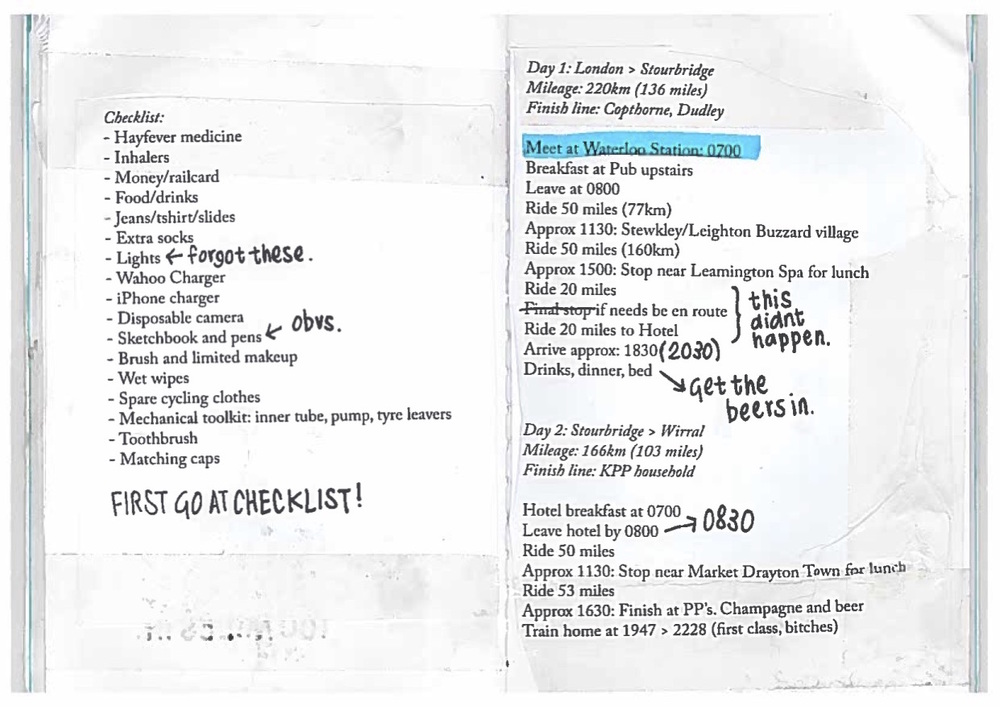 Checklist:
- Hayfever medicine
- Inhalers
- Money/railcard
- Food/drinks
- Jeans/tshirt/slides
- Extra socks
- Lights ← forgot these.
- Wahoo Charger
- iPhone charger
- Disposable camera
- Sketchbook and pens ← obvs.
- Brush and limited makeup
- Wet wipes
- Spare cycling clothes
- Mechanical toolkit: inner tube, pump, tyre leavers
- Toothbrush
- Matching caps
FIRST GO AT CHECKLIST!
Day 1: London > Stourbridge
Mileage: 220km (136 miles)
Finish line: Copthorne, Dudley
Meet at Waterloo Station: 0700
Breakfast at Pub upstairs
Leave at 0800
Ride 50 miles (77km)
Approx 1130: Stewkley/Leighton Buzzard village
Ride 50 miles (160km)
Approx 1500: Stop near Leamington Spa for lunch
Ride 20 miles
Final stop if needs be en route
Ride 20 miles to Hotel
this
didnt
happen.
Arrive approx: 1830 (2030)
Drinks, dinner, bed
→ Get the
beers in.
Day 2: Stourbridge > Wirral
Mileage: 166km (103 miles)
Finish line: KPP household
Hotel breakfast at 0700
Leave hotel by 0800 → 0830
Ride 50 miles
Approx 1130: Stop near Market Drayton Town for lunch
Ride 53 miles
Approx 1630: Finish at PP's. Champagne and beer
Train home at 1947 > 2228 (first class, bitches)